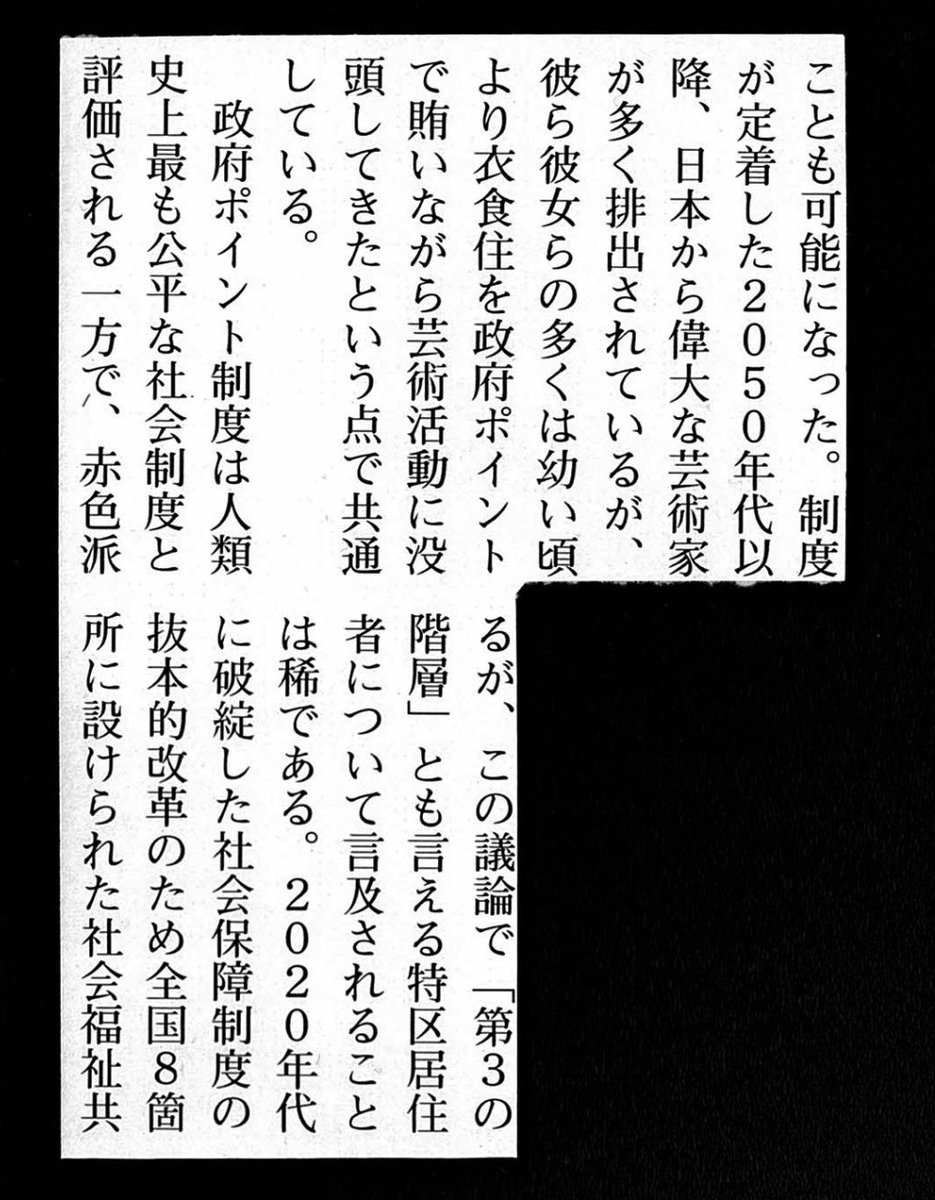 ことも可能になった。制度
が定着した2050年代以
降、日本から偉大な芸術家
が多く排出されているが、
彼ら彼女らの多くは幼い頃
より衣食住を政府ポイント
で賄いながら芸術活動に没
頭してきたという点で共通
している。
　政府ポイント制度は人類
史上最も公平な社会制度と
評価される一方で、赤色派
るが、この議論で「第3の
階層」とも言える特区居住
者について言及されること
は稀である。2020年代
に破綻した社会保障制度の
抜本的改革のため全国8箇
所に設けられた社会福祉共